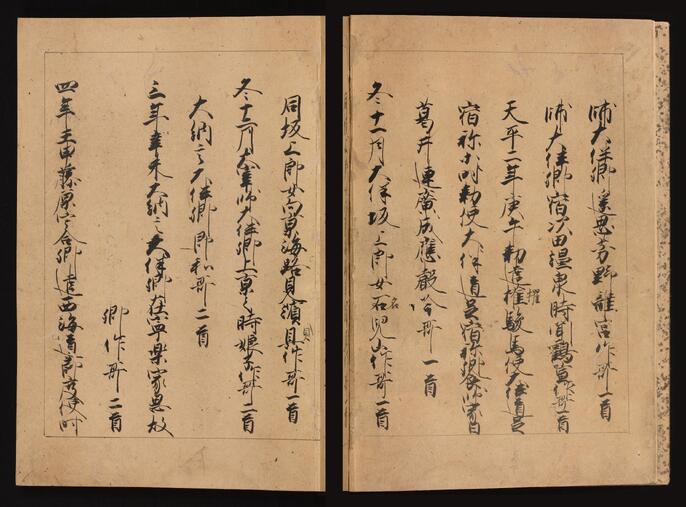 帥大伴卿遥思芳野離宮作哥一首
帥大伴卿宿次田温泉時聞鶴喧作哥一首
天平二年庚午勅遣擢駿馬使大伴道足
宿祢時勅使大伴道足宿祢饗帥家日
葛井連廣成應聲吟哥一首
冬十一月大伴坂上郎女名兒山作哥一首
同坂上郎女向京海路見濱貝作哥一首
冬十二月大宰帥大伴卿上京之時娘子作哥二首
大納言大伴卿即和哥二首
三年辛未大納言大伴卿在寧樂家思故
卿作哥二首
四年壬申藤原宇合卿遣西海道節度使時